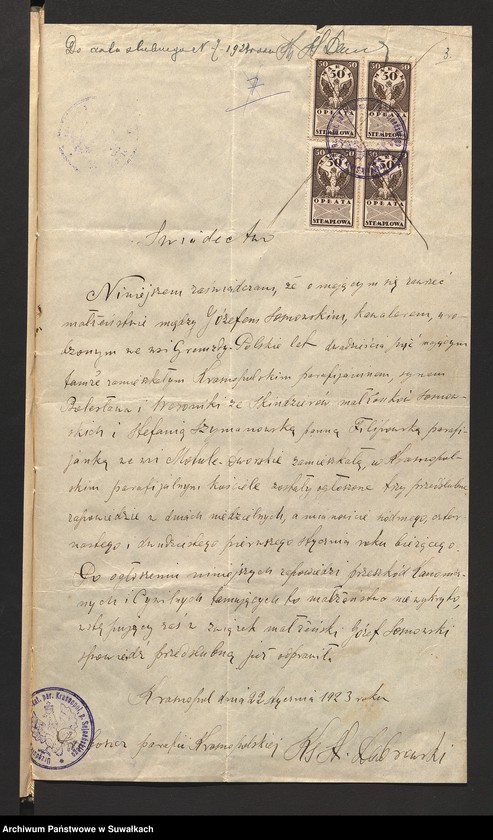 Do aktu ślubnego N 7 1923 roku
3.
50 50
50
OPŁATA
STEMPLOWA
50 50
50
OPŁATA
STEMPLOWA
50 50
50
OPŁATA
STEMPLOWA
50 50
50
OPŁATA
STEMPLOWA
Świadectwo
Niniejszem zaświadczam, że o mającym się zawrzeć
małżeństwie między Józefem Somowskim, kawalerem, uro-
dzonym we wsi Gremzdy-Polskie lat dwadzieścia pięć mającym
tamże zamieszkałym Krasnopolskim parafjaninem, synem
Bolesława i Weroniki ze Skindzierów małżonków Somow-
skich i Stefanią Szymanowską panną Filipowską parafi-
janką we wsi Motule-dworskie zamieszkałą, w Krasnopol-
skim parafijalnym kościele zostały ogłoszone trzy przedślubne
zapowiedzie w dniach niedzielnych, a mianowicie siódmego, czter-
nastego i dwudziestego pierwszego stycznia roku bieżącego.
Po ogłoszeniu niniejszych zapowiedzi przeszkód kanonicz-
nych i cywilnych tamujących to małżeństwo nie wykryto,
wstępujący zaś w związek małżeński Józef Somowski
spowiedź przedślubną już odprawił.
Krasnopol dnia 22 stycznia 1923 roku
parafii Krasnopolskiej Ks. A.
kat. par. Krasnopol, p. Sejneńskiego
Archiwum Państwowe w Suwałkach